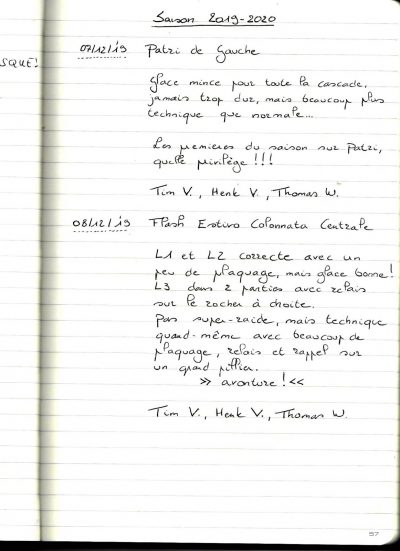 Saison 2019-2020
SQUE!
07/12/19 Patri de Gauche
Glace mince pour toute la cascade,
jamais trop dur, mais beaucoup plus
technique que normale...
Les premieres du saison sur Patri,
quelle privilège !!!
Tim V., Henk V., Thomas W.
08/12/19 Flash Estivo Colonnata Centrale
L1 et L2 correcte avec un
peu de plaquage, mais glace bonne!
L3 dans 2 parties avec relais
sur le rocher à droite.
Pas super-raide, mais technique
quand-même avec beaucoup de
plaquage, relais et rappel sur
un grand pillier.
>> aventure ! <<
Tim V., Henk V., Thomas W.
57